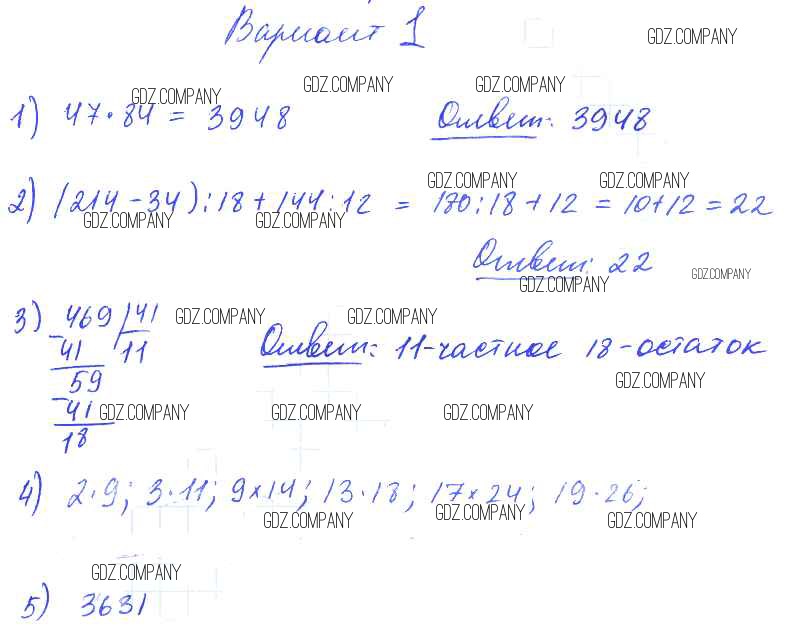 Вариант 1
GDZ.COMPANY
GDZ.COMPANY GDZ.COMPANY GDZ.COMPANY
1) 47·84 = 3948 Ответ: 3948
GDZ.COMPANY GDZ.COMPANY
2) (214-34):18+144:12 = 180:18+12 = 10+12 = 22
GDZ.COMPANY GDZ.COMPANY
Ответ: 22 GDZ.COMPANY
GDZ.COMPANY
3) 469 | 41 GDZ.COMPANY GDZ.COMPANY
- 41 11 Ответ: 11-частное 18-остаток
59 GDZ.COMPANY
- 41 GDZ.COMPANY GDZ.COMPANY GDZ.COMPANY
18
4) 2·9; 3·11; 9×14; 13·18; 17×24; 19·26;
GDZ.COMPANY GDZ.COMPANY GDZ.COMPANY
GDZ.COMPANY
5) 3631